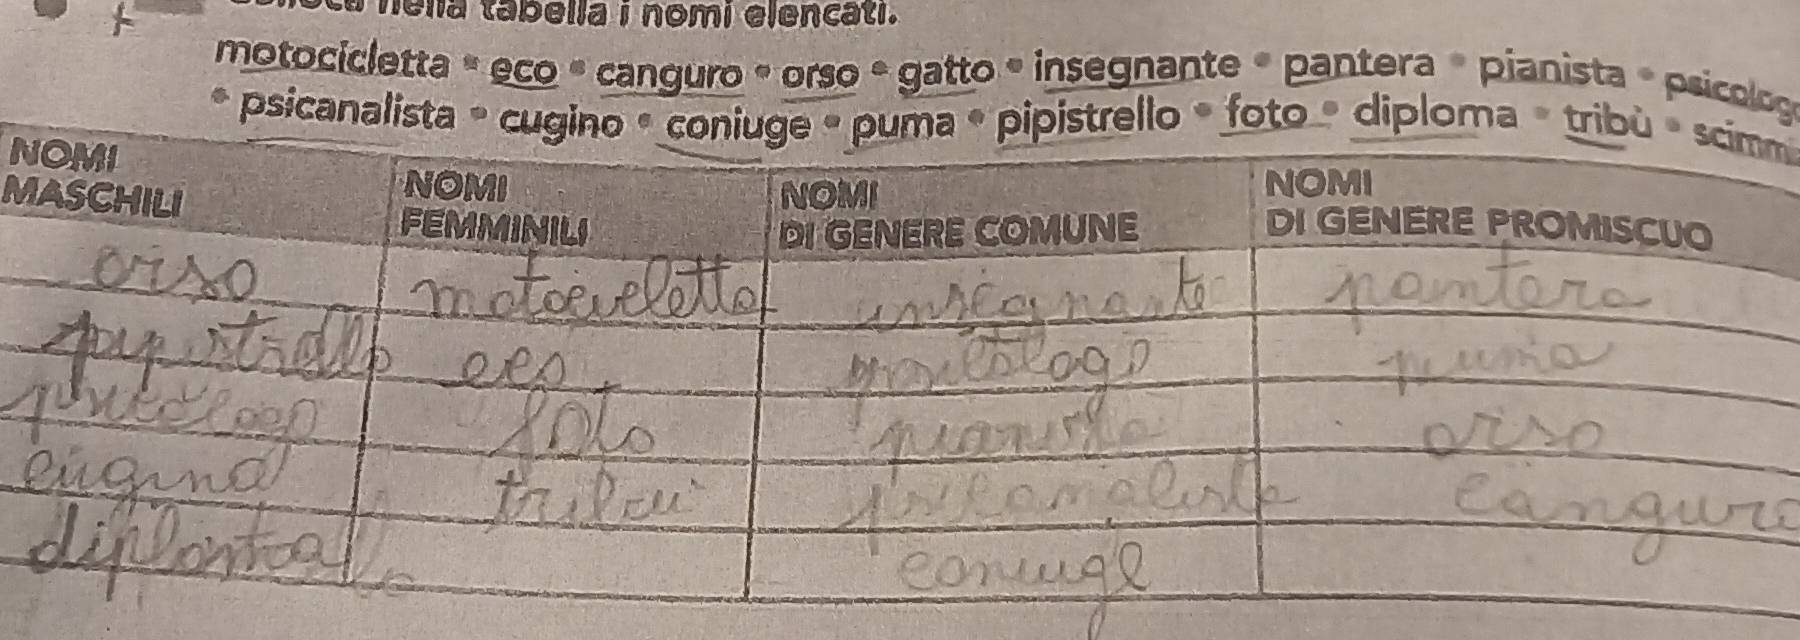 nella tabella i nomi elencati.
motocicletta • eco • canguro • orso • gatto • insegnante • pantera • pianista • psicologo
• psicanalista • cugino • coniuge • puma • pipistrello • foto • diploma • tribù • scimmi
NOMI MASCHILI
NOMI FEMMINILI
NOMI DI GENERE COMUNE
NOMI DI GENERE PROMISCUO
orso motocicletta insegnante pantera
pipistrello eco psicologo puma
psicologo foto pianista orso
cugino tribù psicanalista canguro
diploma coniuge